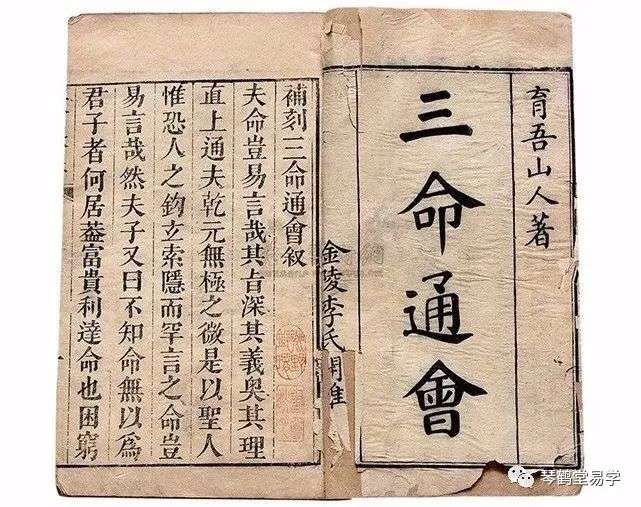 育吾山人著
三命通會
金陵李氏
補刻三命通會叙
夫命豈易言哉其旨深其義奥其理
直上通夫乾元無極之微是以聖人
惟恐人之鈎玄索隱而罕言之命豈
易言哉然夫子又曰不知命無以爲
君子者何居葢富貴利達命也困窮
琴鹤堂易学